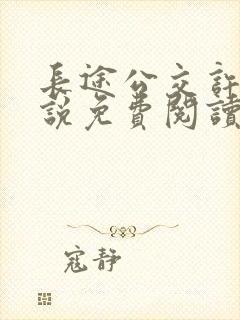 長途公交訐
說免費閱讀
寇靜